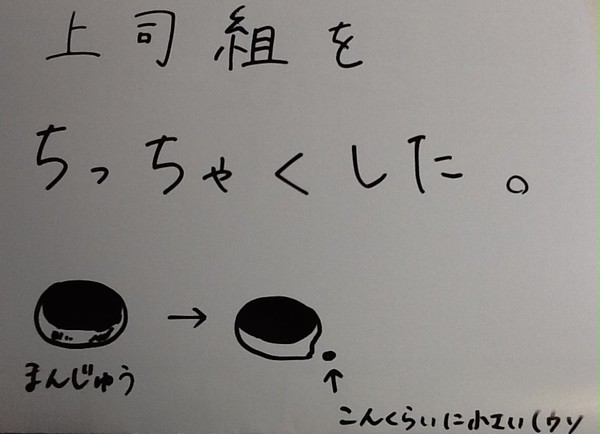 上司組を
ちっちゃくした。
→
まんじゅう
↑
こんくらいに小エい(ウソ